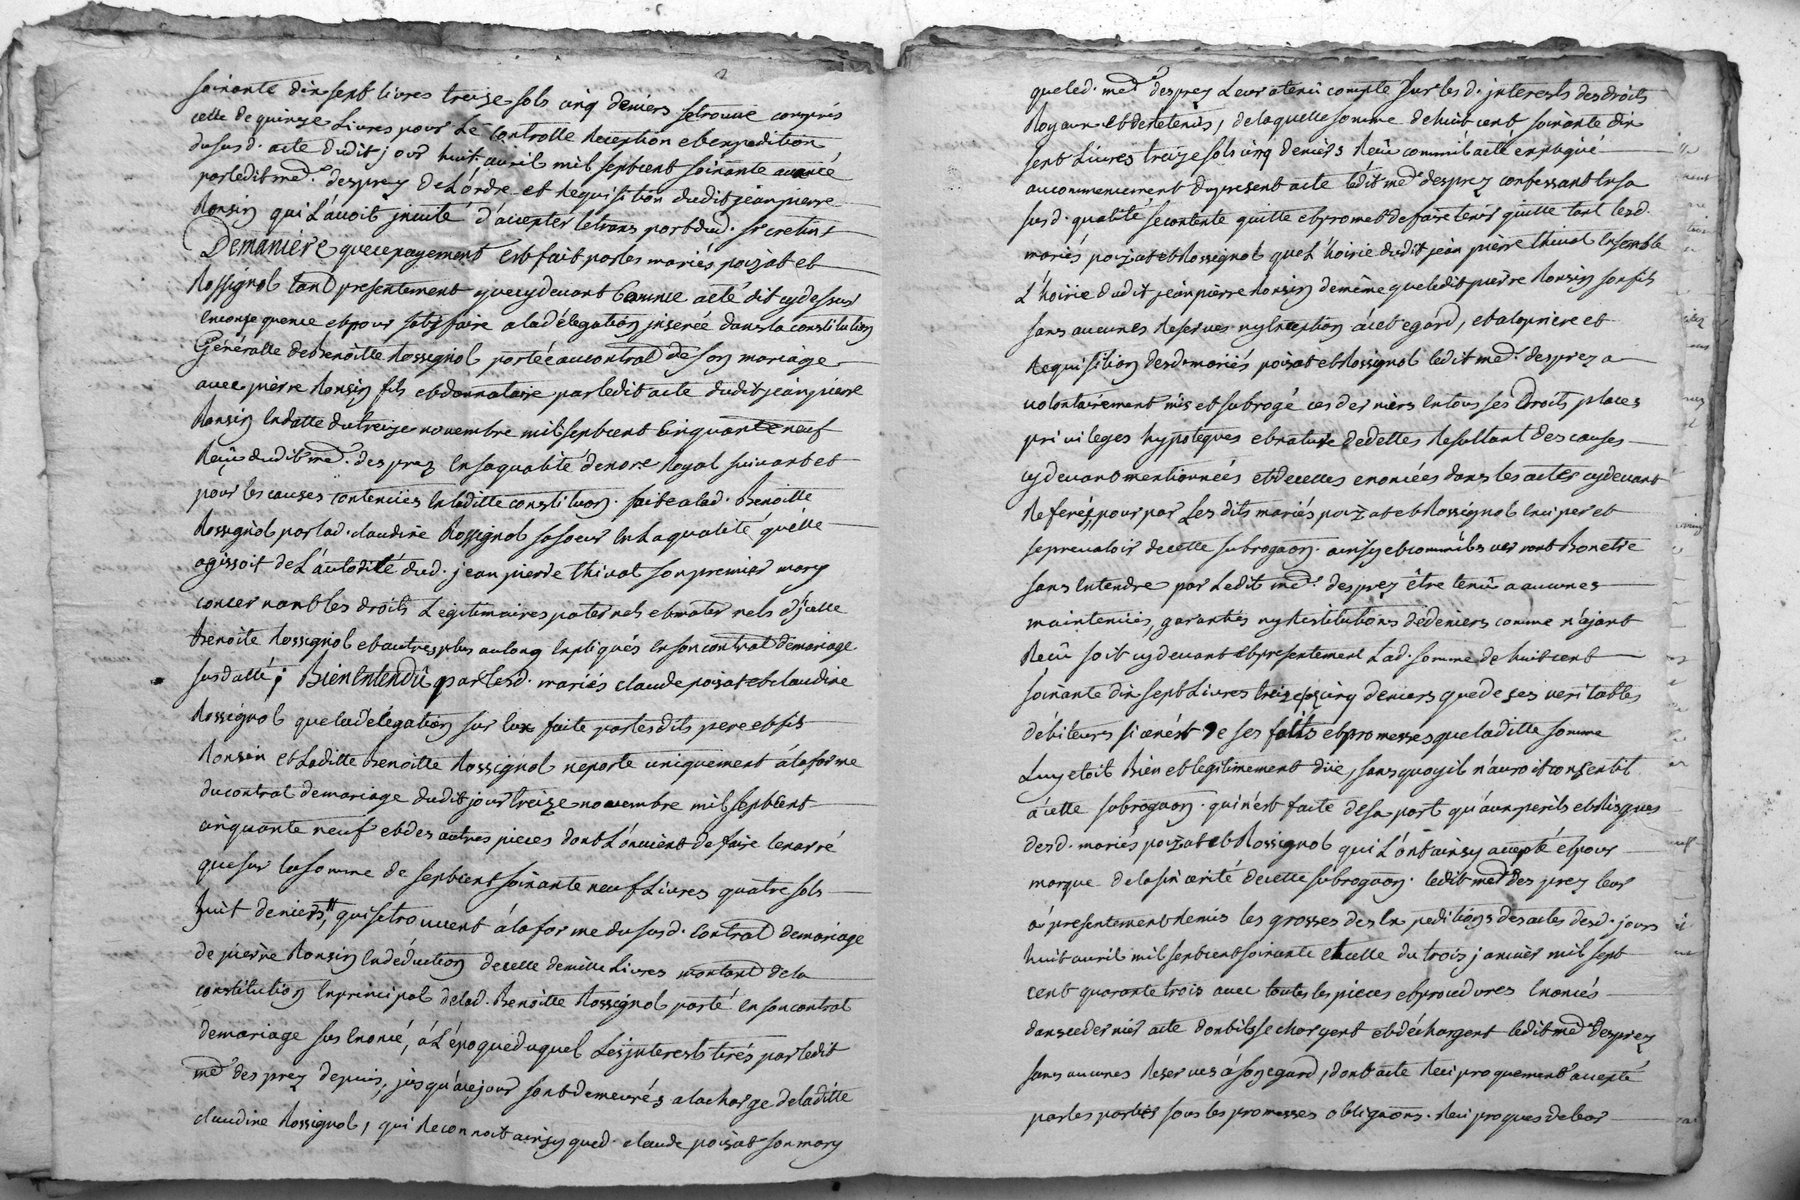 soixante dix sept livres treize sols cinq deniers se trouve compris
celle de quinze Livres pour Le Controlle Reception et expedition
du susd. acte dudit jour huit avril mil sept cent soixante avancé
par ledit me. desprez de L'ordre et Requisition dudit jean pierre
Ronsin qui L'avoit invité d'accepter le transport dud. sr cretin
De maniere que ce payement est fait par les mariés poizat et
Rossignol tant presentement que cy devant Comme a eté dit cy dessus
en consequence et pour satisfaire a la délegation inserée dans la constitution
Généralle de Benoitte Rossignol portée au contrat de son mariage
avec pierre Ronsin fils et donnataire par ledit acte dudit jean pierre
Ronsin en datte du treize novembre mil sept cent cinquante neuf
Reçu dudit me. desprez en sa qualité de no.re Royal suivant et
pour les causes contenües en laditte constituon. faite a lad. Benoitte
Rossignol par lad. claudine Rossignol sa soeur en La qualité qu'elle
agissoit de L'autorité dud. jean pierre thival son premier mary
concernant les droits Légitimaires paternels et maternels d'jcelle
Benoite Rossignol et autres plus au long expliqués en son contrat de mariage
susdatté ; Bien Entendû par lesd. mariés claude poizat et claudine
Rossignol que la délegation sur eux faite par lesdits pere et fils
Ronsin et Laditte Benoitte Rossignol ne porte uniquement á la forme
du contrat de mariage dudit jour treize novembre mil sept cent
cinquante neuf et des autres pieces dont L'on vient de faire le narré
que sur la somme de sept cent soixante neuf Livres quatre sols
huit deniers, qui se trouvent á la forme du susd. contrat de mariage
de pierre Ronsin en déduction de celle de mille Livres montant de la
constitution en principal de lad. Benoitte Rossignol porté en son contrat
de mariage sus enoncé, á L'époque duquel Les interests tirés par ledit
me. des prez depuis, jusqu'a ce jour sont demeurés a la charge de laditte
claudine Rossignol, qui Reconnoit ainsy que d. claude poizat son mary
que led. me. desprez Leur a tenû compte sur les d. interests des droits
Royaux et de retenüs, de laquelle somme de huit cent soixante dix
sept Livres treize sols cinq deniers Reçû comm'il a eté expliqué
au commencement du present acte ledit me. desprez confessant en sa
susd. qualité, se contente quitte et promet de faire tenir quitte tant lesd.
mariés poizat et Rossignol que L'hoirie dudit jean pierre thival ensemble
L'hoirie dudit jean pierre Ronsin de même que ledit pierre Ronsin son fils
sans aucunes Reserves ny exception á cet egard, et a la priere et
Requisition desd. mariés poizat et Rossignol ledit me. desprez a
volontairement mis et subrogé ces derniers en tous ses Droits places
privileges hypoteques et nature de dettes Resultant des causes
cy devant mentionneés et de celles enoncées dans les actes cy devant
Referés, pour par Les dits mariés poizat et Rossignol en uiser et
se prevaloir de cette subrogaon. ainsy et comm'ils verront Bon etre
sans entendre par Ledit me. desprez être tenû a aucunes
maintenües, garanties ny Restitutions de deniers comme n'ayant
Reçû soit cy devant et presentement Lad. somme de huit cent
soixante dix sept Livres treize sols cinq deniers que de ses veritables
débiteurs si ce n'est de ses faits et promesses que laditte somme
Luy etoit Bien et legitimement düe, sans quoy il n'auroit consentit
a cette subrogaon. qui n'est faite de sa part qu'aux perils et Risques
desd. mariés poizat et Rossignol qui L'ont ainsy accepté et pour
marque de la sincérité de cette subrogaon. ledit me. des prez leur
a presentement Remis les grosses des expeditions des actes desd. jours
huit avril mil sept cent soixante et celle du trois janvier mil sept
cent quarante trois avec toutes les pieces et procedures enoncés
dans ce dernier acte dont ils se chargent et déchargent ledit me. desprez
sans aucunes Reserves á son egard, dont acte Reciproquement accepté
par les parties sous les promesses obligaons. Reciproques de leur